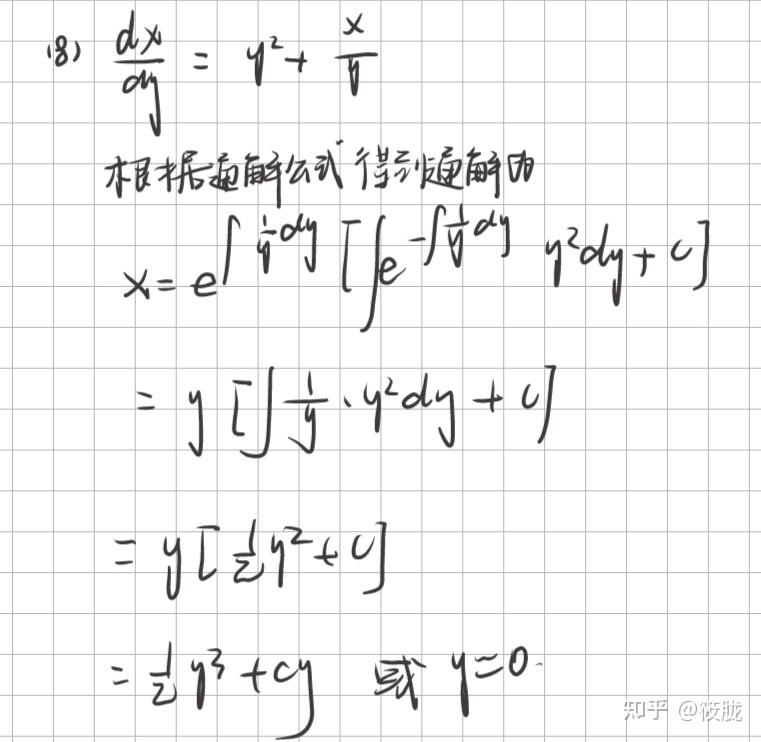 (8) dx/dy = y² + x/y
根据通解公式得到通解为
x = e^{∫ 1/y dy} [∫ e^{-∫ 1/y dy} y² dy + c]
= y [∫ 1/y · y² dy + c]
= y [1/2 y² + c]
= 1/2 y³ + cy 或 y=0.
知乎 @筱胧